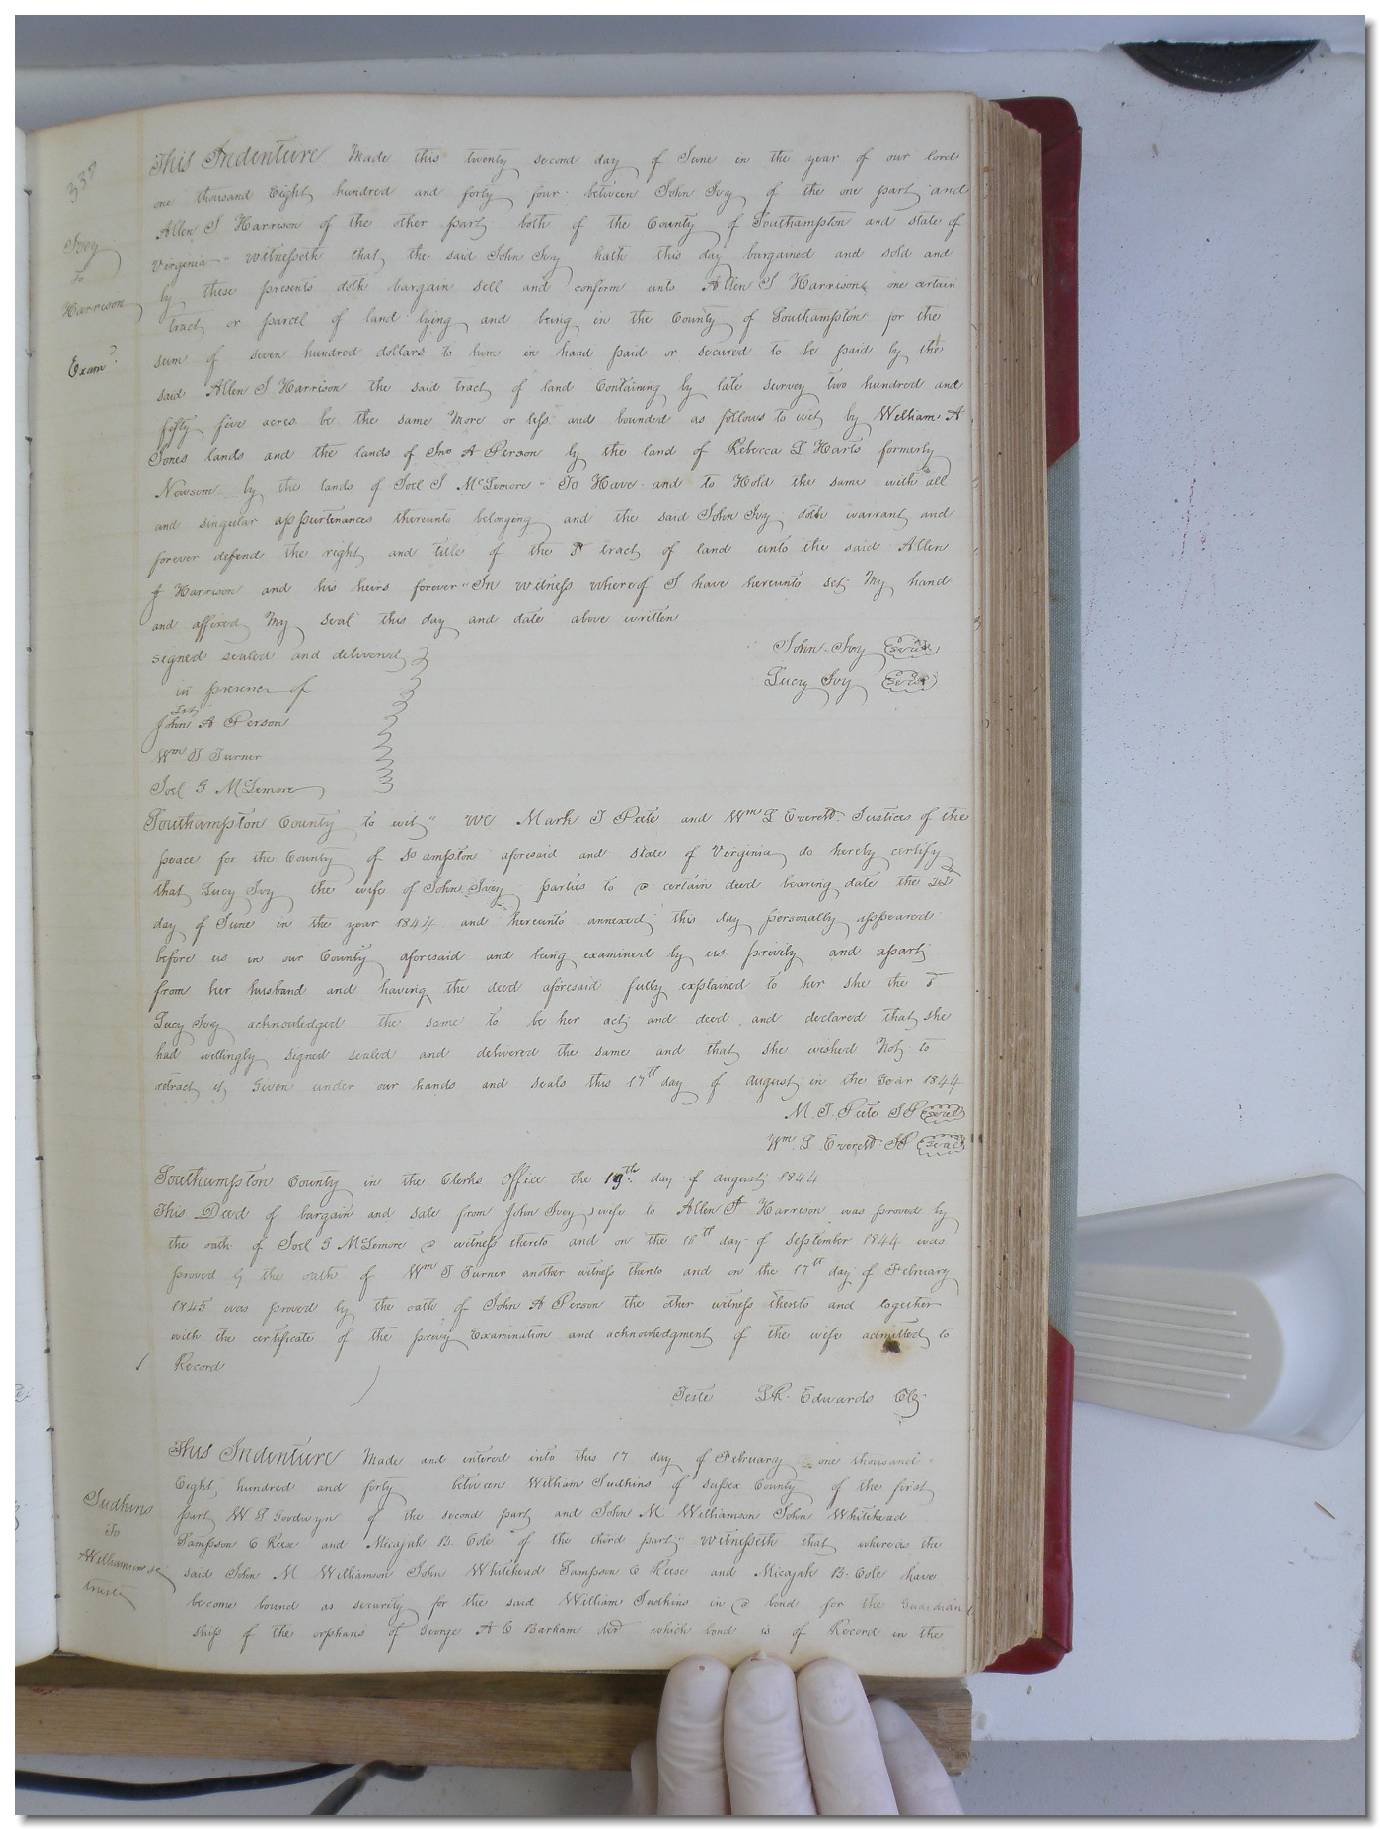 338
Ivey
to
Harrison
Exam.d
This Indenture Made this twenty second day of June in the year of our lord
one thousand Eight hundred and forty four between John Ivy of the one part and
Allen J Harrison of the other part both of the County of Southampton and state of
Virginia " witnesseth that the said John Ivy hath this day bargained and sold and
by these presents doth bargain sell and confirm unto Allen J Harrison one certain
tract or parcel of land lying and being in the County of Southampton for the
sum of seven hundred dollars to him in hand paid or secured to be paid by the
said Allen J Harrison the said tract of land Containing by late survey two hundred and
fifty five acres be the same More or less and bounded as follows to wit by William A
Jones lands and the lands of Jno A Person by the land of Rebecca Harts formerly
Newsom by the lands of Joel McLemore " To Have and to Hold the same with all
and singular appurtenances thereunto belonging and the said John Ivy doth warrant and
forever defend the right and title of the tract of land unto the said Allen
J Harrison and his heirs forever " In witness whereof I have hereunto set My hand
and affixed My seal this day and date above written
signed sealed and delivered
in presence of
John A Person
Wm J Turner
Joel G McLemore
John Ivy seal
Lucy Ivy seal
Southampton County to wit " We Mark J Pete and Wm Everett Justices of the
peace for the County of So ampton aforesaid and state of Virginia do hereby certify
that Lucy Ivy the wife of John Ivey parties to a certain deed bearing date the 22d
day of June in the year 1844 and hereunto annexed this day personally appeared
before us in our County aforesaid and being examined by us privily and apart
from her husband and having the deed aforesaid fully explained to her she the
Lucy Ivy acknowledged the same to be her act and deed and declared that she
had willingly signed sealed and delivered the same and that she wished Not to
retract it Given under our hands and seals this 17th day of August in the Year 1844
M. J. Pete JP seal
Wm Everett JP seal
Southampton County in the Clerks office the 19th day of august 1844
This Deed of bargain and sale from John Ivey & wife to Allen J Harrison was proved by
the oath of Joel G McLemore a witness thereto and on the 16th day of September 1844 was
proved by the oath of Wm J Turner another witness thereto and on the 17th day of February
1845 was proved by the oath of John A Person the other witness thereto and together
with the certificate of the privy Examination and acknowledgment of the wife admitted to
Record
Teste LR. Edwards Clk
Judkins
To
Williamson &c
trust
This Indenture Made and entered into this 17 day of February one thousand
Eight hundred and forty between William Judkins of Sussex County of the first
part W Goodwyn of the second part and John M Williamson John Whitehead
Sampson C Reese and Micajah B. Cole of the third part " witnesseth that whereas the
said John M Williamson John Whitehead Sampson C Reese and Micajah B. Cole have
become bound as security for the said William Judkins in a bond for the Guardian
ship of the orphans of George A C Barham decd which bond is of Record in the